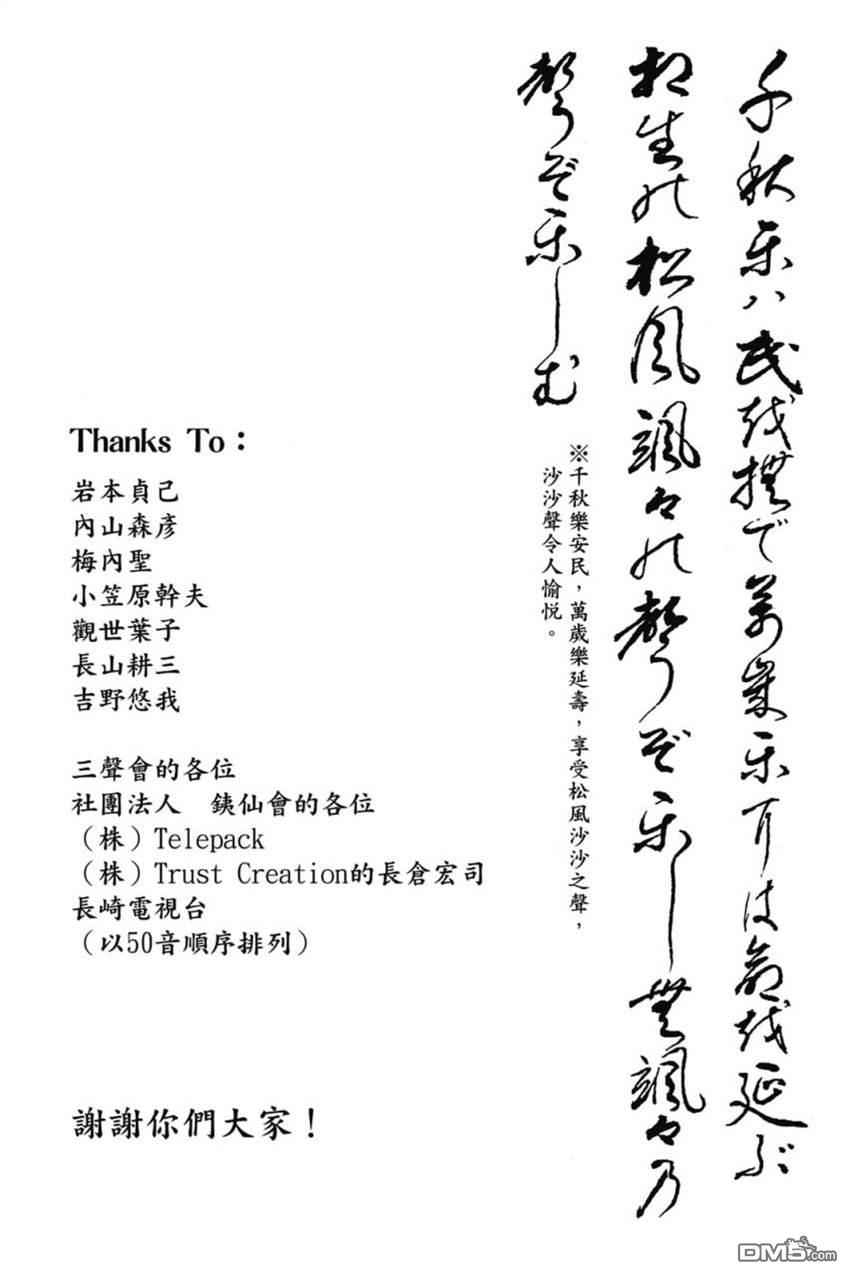 千秋楽ハ民越撫で萬歳楽耳は命越延ぶ
相生能松風颯々能聲ぞ楽し無颯々乃
聲ぞ楽しむ
※千秋樂安民，萬歲樂延壽，享受松風沙沙之聲，
沙沙聲令人愉悅。
Thanks To：
岩本貞己
內山森彥
梅內聖
小笠原幹夫
觀世葉子
長山耕三
吉野悠我
三聲會的各位
社團法人　銕仙會的各位
（株）Telepack
（株）Trust Creation的長倉宏司
長崎電視台
（以50音順序排列）
謝謝你們大家！
DM5.com